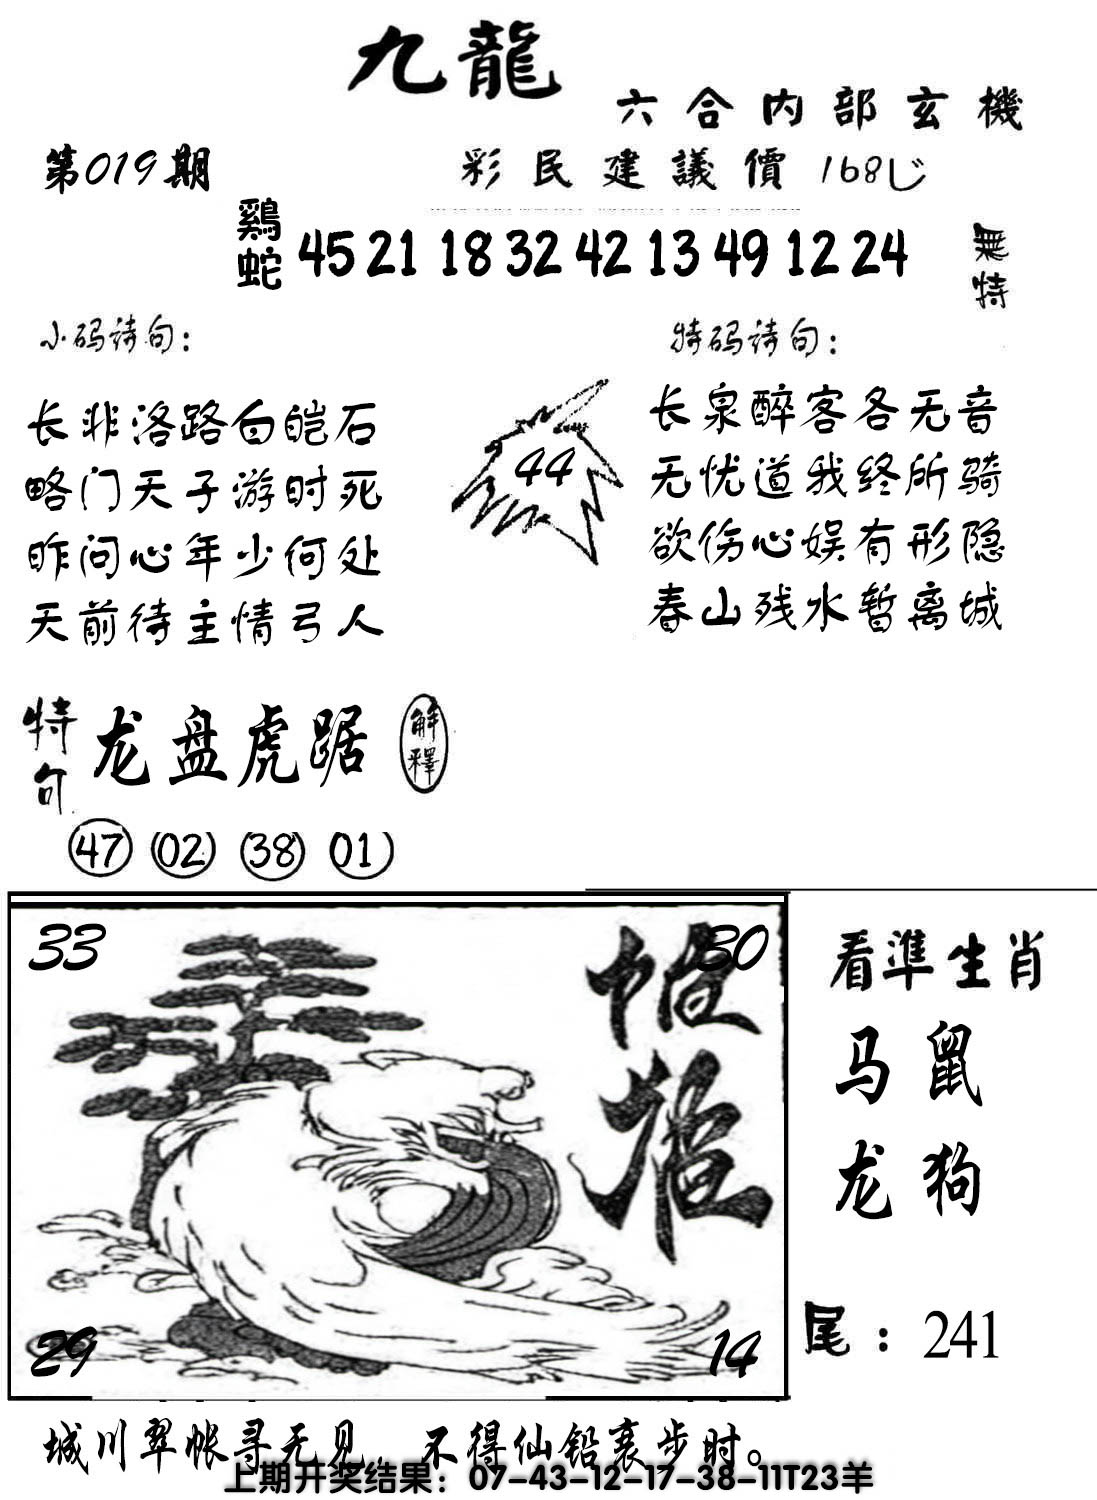 九龍
六合内部玄機
第019期
彩民建議價168じ
鷄蛇 45 21 18 32 42 13 49 12 24 無特
小码诗句：
长非洛路白皑石
略门天子游时死
昨问心年少何处
天前待主情弓人
44
特码诗句：
长泉醉客各无音
无忧道我终所骑
欲伤心娱有形隐
春山残水暂离城
特句 龙盘虎踞 解釋
47 02 38 01
33
30
29
14
看準生肖
马鼠
龙狗
尾：241
城川翠帐寻无见，不得仙铅裹步时。
上期开奖结果：07-43-12-17-38-11T23羊